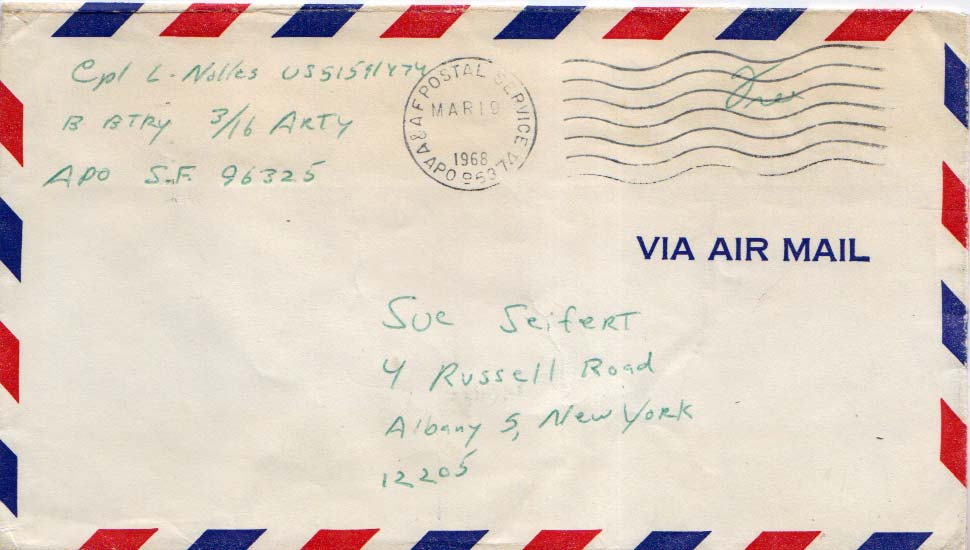 Cpl L. Nolles US51591474
B BTRY 3/16 ARTY
APO S.F. 96325
A & A F POSTAL SERVICE
MAR 19
1968
APO 96374
Free
VIA AIR MAIL
Sue Seifert
4 Russell Road
Albany 5, New York
12205